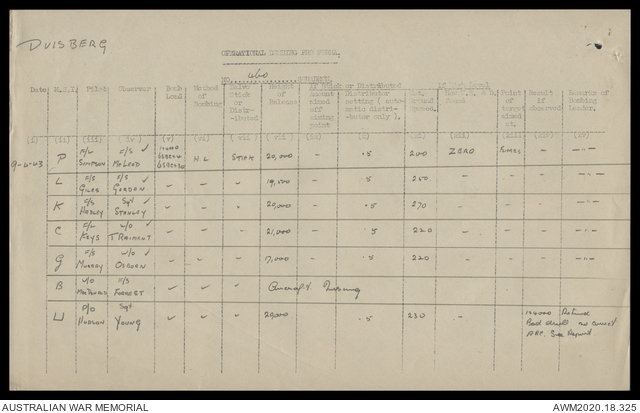 DUISBERG
OPERATIONAL BOMBING PRO FORMA.
NO. 460 SQUADRON.
Date M.S.I. Pilot Observer Bomb Load Method of Bombing Salvo Stick or Distributed Height of Release If Stick or Distributed
Amount aimed off aiming point Distributor setting (automatic distributor only). Point of target aimed at. Result if observed Remarks of Bombing Leader.
(i) (ii) (iii) (iv) (v) (vi) (vii) (viii) (ix) (x)
9-4-43 P F/Lt SIMPSON F/S McLEOD H.L STICK 20,000 - .5 200 ZERO FLARES - -"-
L F/S GILES F/S GORDON " " " 19,500 - .5 - - - -"-
K F/S HADLEY Sgt STANLEY " " " 20,000 - .5 270 - - - -"-
C F/Lt KEYS W/O " " " 21,000 - .5 220 - - - -"-
G F/S MURRAY W/O OSBORN " " " 7,000 - .5 220 - - - -"-
B W/O F/S FORREST " " " Aircraft Missing
U P/O HUDSON Sgt YOUNG " " " 20,000 .5 230 - See Report
AUSTRALIAN WAR MEMORIAL
AWM2020.18.325